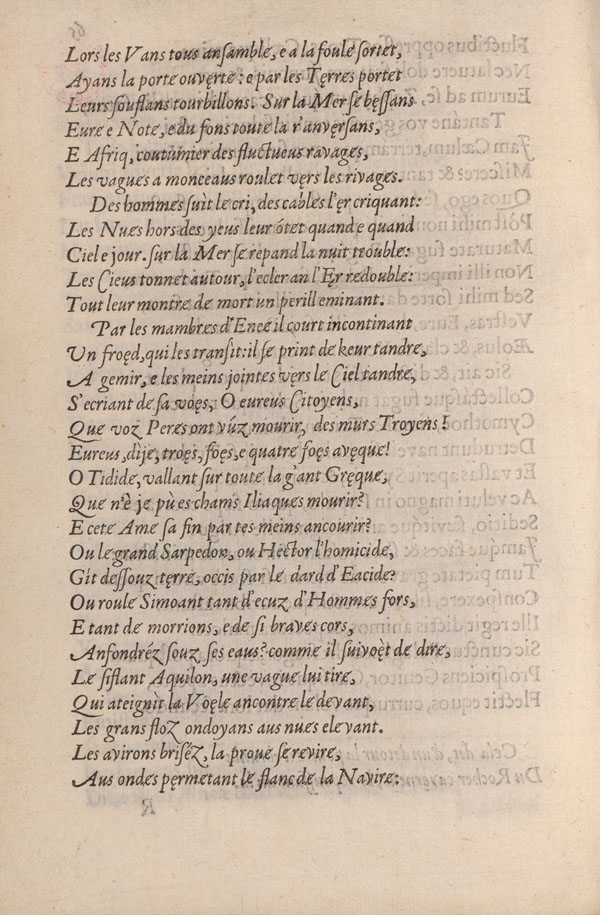 Lors les Vans tous ansamble, e a la foule sortet,
Ayans la porte ouvęrte : e par les Tęrres portet
Leurs souflans tourbillons. Sur la Mer se bęssans
Eure e Note, e du fons toute la r'anvęrsans,
E Afriq, coutumier des fluctueus ravages,
Les vagues a monceaus roulet vęrs les rivages.
Des hommes suit le cri, des cables l'ęr criquant:
Les Nues hors des yeus leur ótet quand e quand
Ciel e jour. sur la Mer se repand la nuit trouble:
Les Cieus tonnet autour, l'ecler an l'Er redouble:
Tout leur montre de mort un perill eminant.
Par les mambres d'Eneé il court incontinant
Un froęd, qui les transit: il se print de keur tandre,
A gemir, e les meins jointes vęrs le Ciel tandre,
S'ecriant de sa voęs, O eureus Citoyens,
Que voz Peres ont vúz mourir, des murs Troyens !
Eureus, dije, troęs, foęs, e quatre foęs avęque!
O Tidide, vallant sur toute la g'ant Gręque,
Que n'è je pù es chams Iliaques mourir?
E cete Ame sa fin par tes meins ancourir?
Ou le grand Sarpedon, ou Hector l'homicide,
Gít dessouz tęrre, occis par le dard d'Eacide?
Ou roule Simoant tant d'ecuz d'Hommes fors,
E tant de morrions, e de si braves cors,
Anfondréz souz ses eaus? comme il suivoęt de dire,
Le siflant Aquilon, une vague lui tire,
Qui ateignìt la Voęle ancontre le devant,
Les grans floz ondoyans aus nues elevant.
Les avirons briséz, la proue se revire,
Aus ondes pęrmetant le flanc de la Navire: